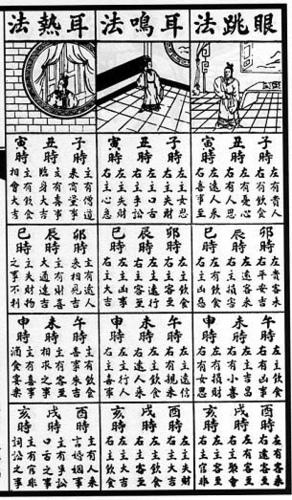 眼跳法
子時
左有貴人
右有飲食
丑時
左有憂心
右有人思
寅時
左遠人來
右喜事至
卯時
左貴客來
右平安吉
辰時
左遠客來
右主損害
巳時
左主飲食
右主凶惡
午時
左主飲食
右有凶事
未時
左主吉昌
右有小喜
申時
左有損財
右有女思
酉時
左有客至
右遠客至
戌時
左有客至
右主聚會
亥時
左有客至
右主官非
耳鳴法
子時
左主女思
右主失財
丑時
左主口舌
右主爭訟
寅時
左主失財
右主心急
卯時
左主飲食
右主客至
辰時
左主遠行
右主客至
巳時
左主凶事
右主大吉
午時
左主遠信
右有親來
未時
左主飲食
右遠人來
申時
左主行人
右主喜事
酉時
左主失財
右主大吉
戌時
左主飲食
右主客至
亥時
左主大吉
右主飲食
耳熱法
子時
主有僧道
來商量事
丑時
主有喜事
臨身大吉
寅時
主有飲食
相會大吉
卯時
主有遠人
來相見吉
辰時
主有財喜
大通達吉
巳時
主失財物
之事不利
午時
喜事
未時
主有客來
相求之事
申時
主有喜事
酒食宴樂
酉時
主有人來
言婚姻事
戌時
主有爭訟
口舌之事
亥時
主有官非
詞訟之事